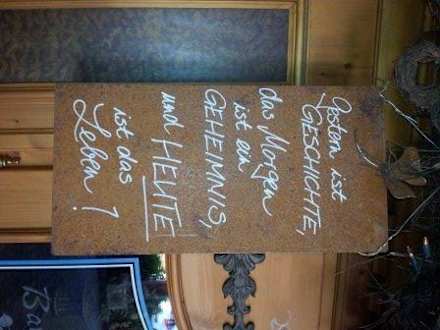 Gestern ist
GESCHICHTE,
das Morgen
ist ein
GEHEIMNIS,
und HEUTE
ist das
Leben!
Ba